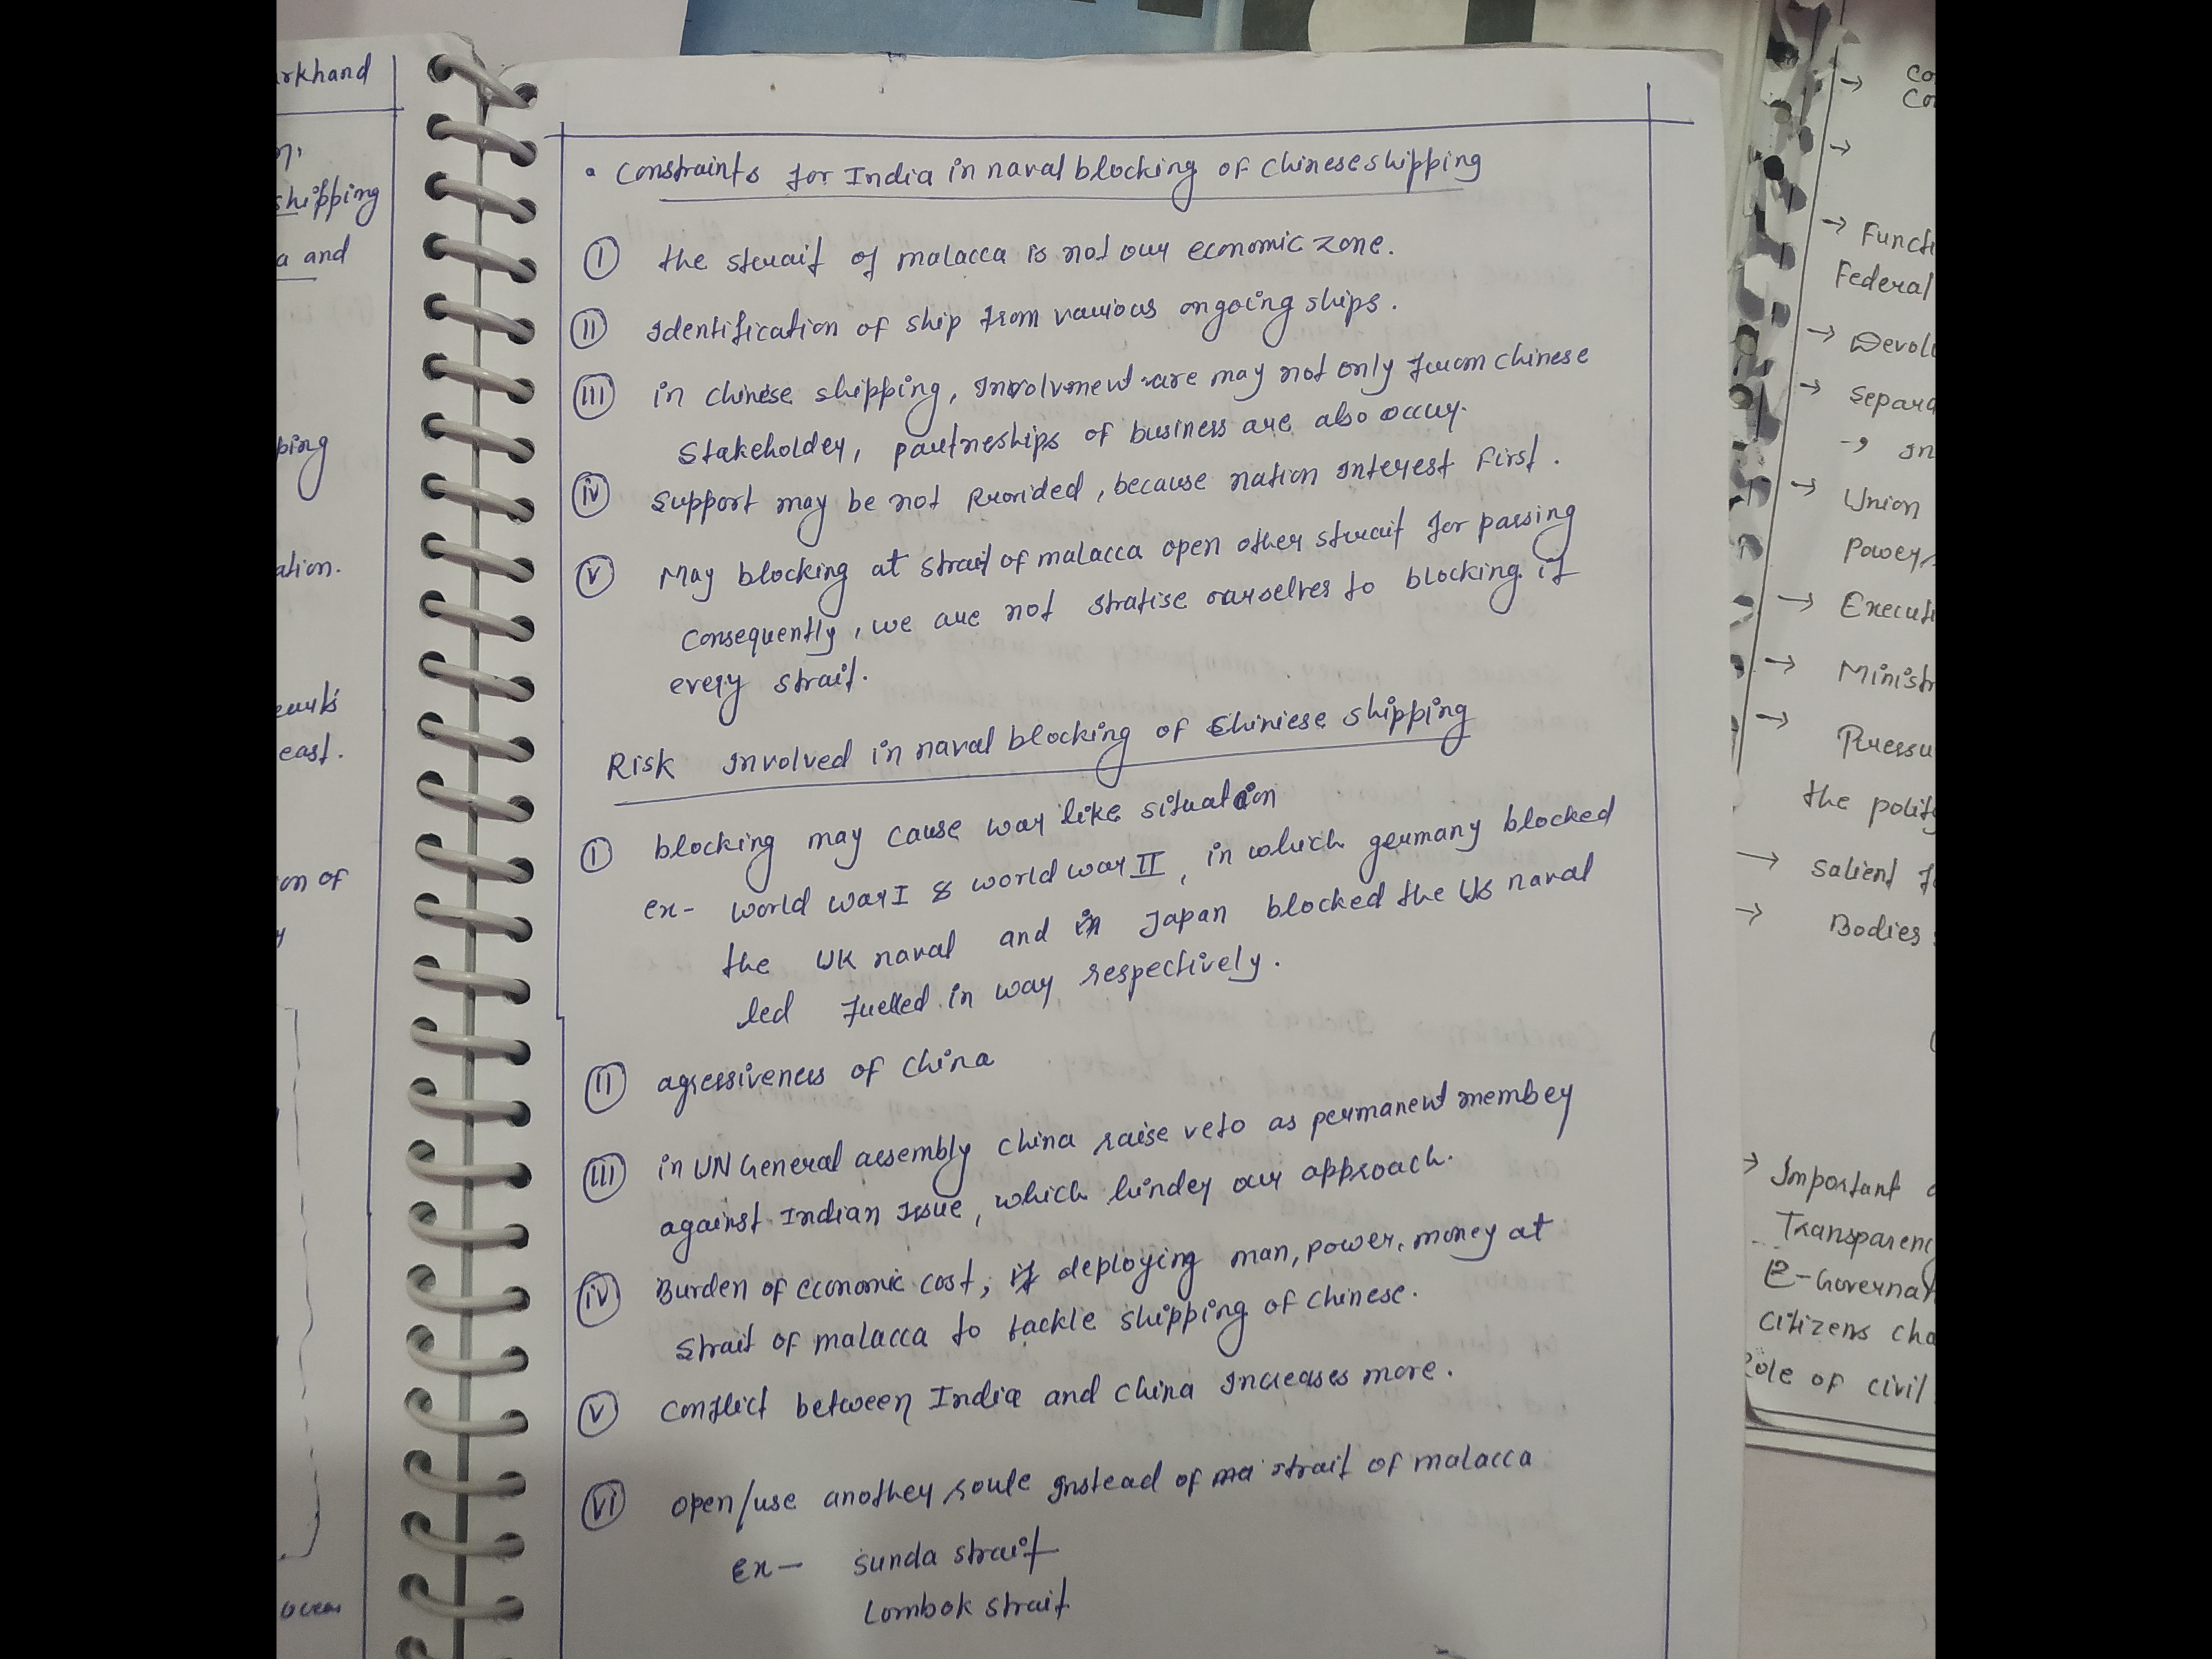 arkhand
shipping
a and
ping
ation.
east.
on of
• Constraints for India in naval blocking of chinese shipping
(I) the strait of malacca is not our economic zone.
(II) Identification of ship from various ongoing ships.
(III) in chinese shipping, Involvment are may not only from chinese
stakeholder, partneships of business are also occur.
(iv) support may be not Provided, because nation Interest First.
(v) May blocking at strait of malacca open other strait for passing
Consequently, we are not stratise ourselves to blocking it
every strait.
Risk Involved in naval blocking of Shiniese shipping
(I) blocking may cause war like situation
ex- world war I & world war II, in which germany blocked
the UK naval and in Japan blocked the US naval
led fuelled in war respectively.
(II) agressiveness of China
(III) in UN General assembly china raise veto as permanent member
against Indian Issue, which hinder our approach.
(iv) Burden of economic cost, if deploying man, power, money at
strait of malacca to tackle shipping of chinese.
(v) conflict between India and china Increases more.
(vi) open/use another route Instead of strait of malacca
Ex- sunda strait
Lombok strait
→ Co
Co
→
→ Functi
Federal
→ Devolu
→ Separa
→ In
→ Union
Powers
→ Executi
→ Ministr
→ Pressu
the polity
→ Salient f
→ Bodies
→ Important
Transparenc
E-Governan
Citizens cha
Role of civil